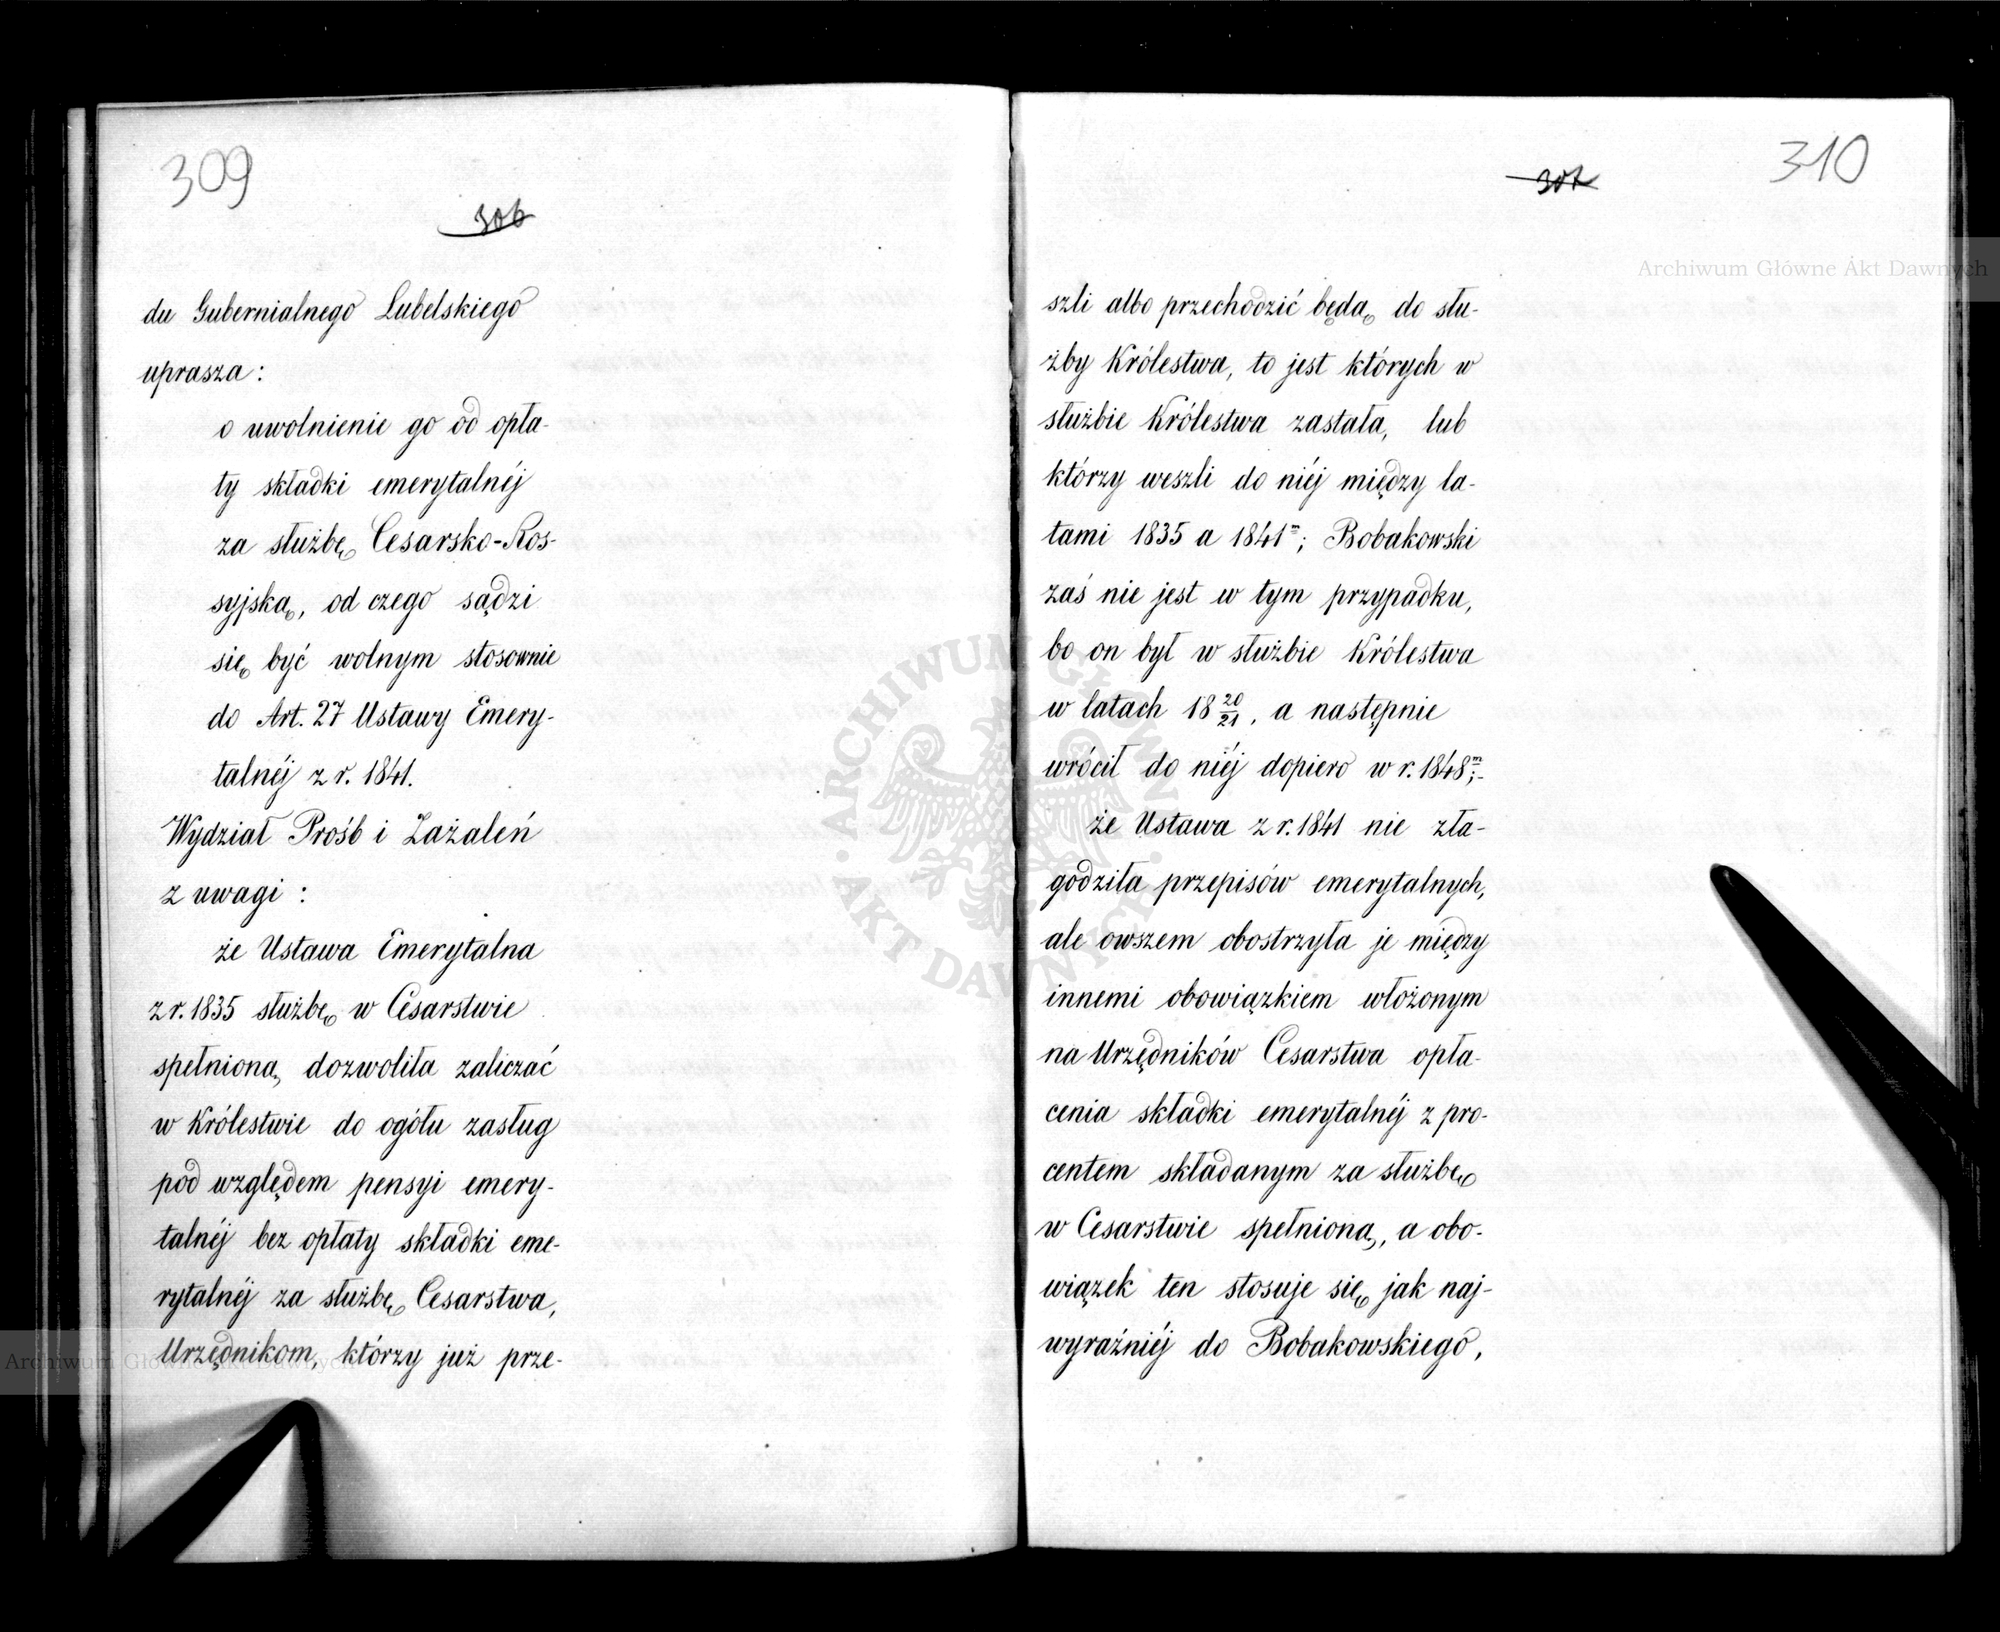 309
306
du Gubernialnego Lubelskiego
uprasza:
o uwolnienie go od opła-
ty składki emerytalnéj
za służbę Cesarsko-Ros-
syjską, od czego sądzi
się być wolnym stosownie
do Art. 27 Ustawy Emery-
talnéj z r. 1841.
Wydział Prośb i Zażaleń
z uwagi:
że Ustawa Emerytalna
z r. 1835 służbę w Cesarstwie
spełnioną dozwoliła zaliczać
w Królestwie do ogółu zasług
pod względem pensyi emery-
talnéj bez opłaty składki eme-
rytalnéj za służbę Cesarstwa,
Urzędnikom, którzy już prze-
310
307
szli albo przechodzić będą do słu-
żby Królestwa, to jest których w
służbie Królestwa zastała, lub
którzy weszli do niéj między la-
tami 1835 a 1841m; Bobakowski
zaś nie jest w tym przypadku,
bo on był w służbie Królestwa
w latach 18 20/21, a następnie
wrócił do niéj dopiero w r. 1848m;-
że Ustawa z r. 1841 nie zła-
godziła przepisów emerytalnych,
ale owszem obostrzyła je między
innemi obowiązkiem włożonym
na Urzędników Cesarstwa opła-
cenia składki emerytalnéj z pro-
centem składanym za służbę
w Cesarstwie spełnioną, a obo-
wiązek ten stosuje się jak naj-
wyraźniéj do Bobakowskiego,
Archiwum Główne Akt Dawnych
ARCHIWUM GŁÓWNE · AKT DAWNYCH ·
Archiwum Główne Akt Dawnych